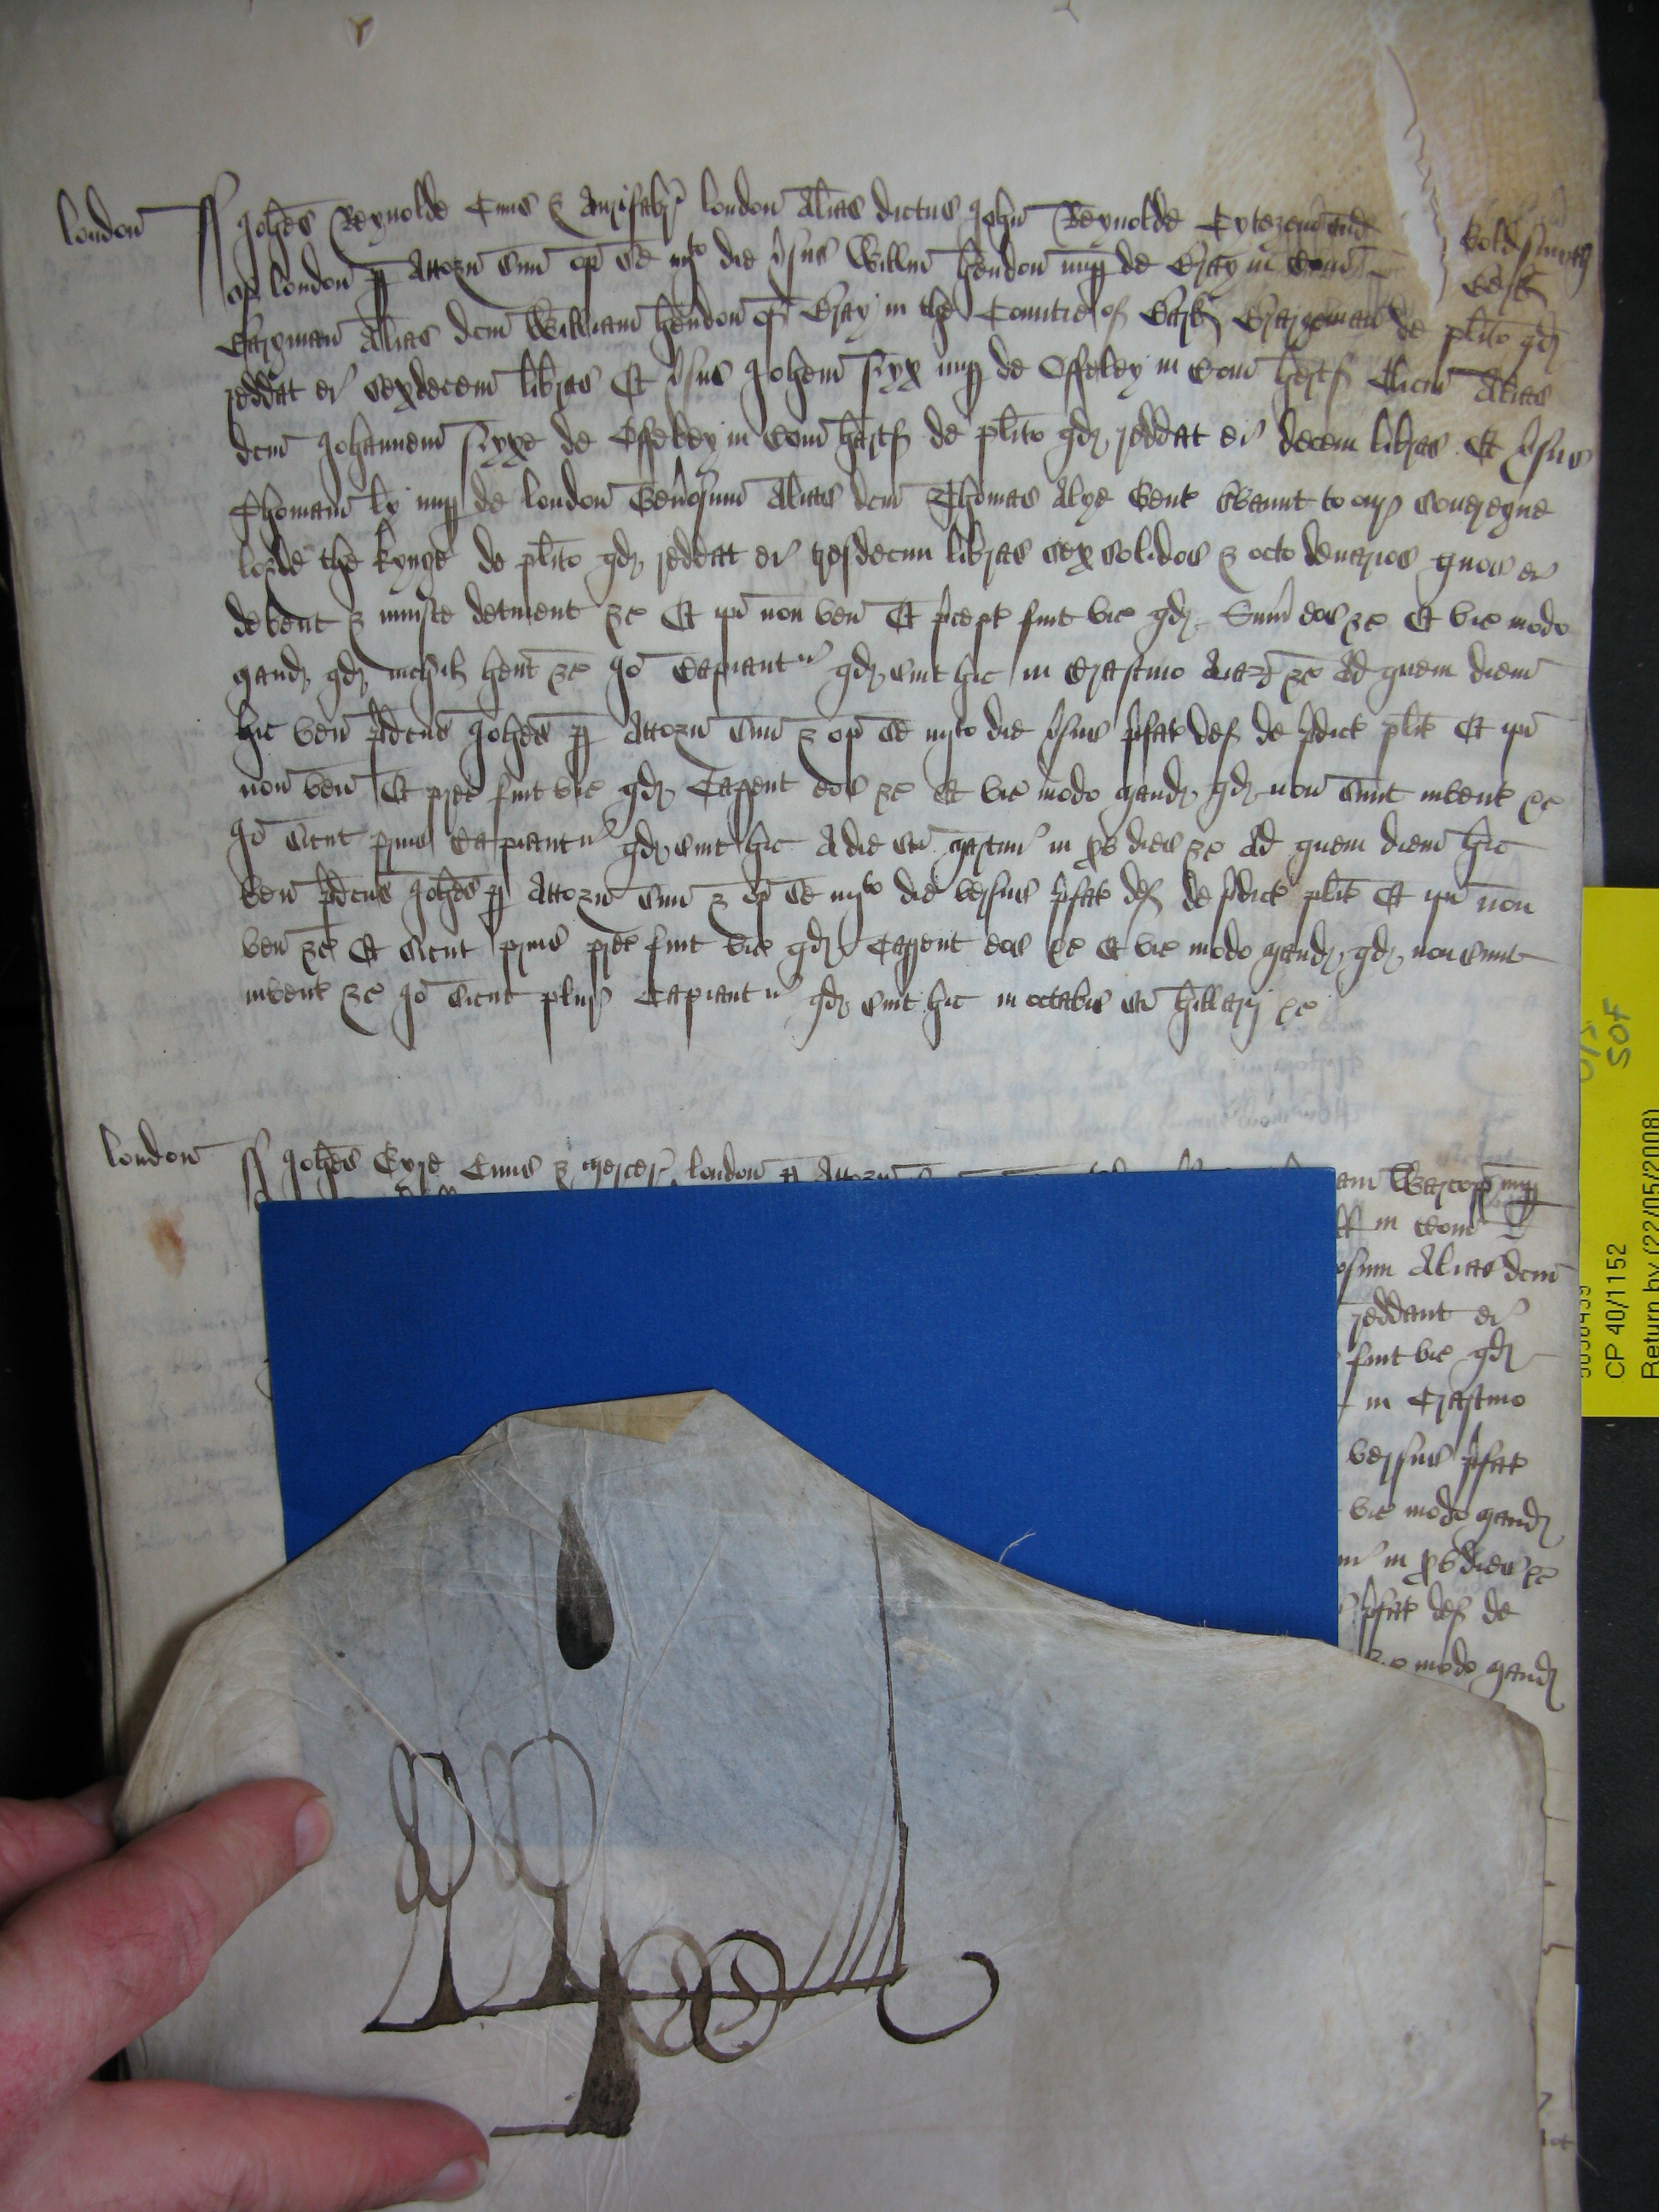 london
Johes Reynolde Civis & Aurifabr london Alias dictus John Reynolde Cytezein and Goldsmyth
of london p Attorn suu op se iiijto die vsus Willm hendon nup de Bray in Com Berk
Bargman Alias dcm William hendon of Bray in the Countie of Bark Bargeman de plito qd
reddat ei sexdecem libras Et vsus Johem Syxx nup de Offeley in Com hertf Clicm Alias
dcm Johannem Syxxe de Offeley in Com hartf de plito qd reddat ei decem libras Et vsus
Thomam ly nup de london Genosum Alias dcm Thomas Alye Gent svaunt to our Souereigne
lorde the kynge de plito qd reddat ei tresdecim libras sex solidos & octo denarios quos ei
debent & iniuste detinent &c Et ipi non ven Et precept fuit vic qd Sum eos &c Et vic modo
mand qd nichil hent &c Io Capiantur qd sint hic in Crastino Aiar &c Ad quem diem
hic ven pdcus Johes p Attorn suu & op se iiijto die vsus pfat def de pdict plit Et ipi
non ven Et prec fuit vic qd Caperet eos &c Et vic modo mand qd non sunt invent &c
Io sicut prius Capiantur qd sint hic A die sci martini in xv dies &c Ad quem diem hic
ven pdcus Johes p Attorn suu & op se iiijto die versus pfat def de pdict plit Et ipi non
ven &c Et sicut prius prec fuit vic qd Caperet eos &c Et vic modo mand qd non sunt
invent &c Io sicut plur Capiantur qd sint hic in octabis sci hillarij &c
london
Johes Eyre Civis & mercer london p Attorn
am Warcopp nup
in Com
osum Alias dcm
reddant ei
fuit vic qd
in Crastino
versus pfat
vic modo mand
in xv dies &c
pfat def de
modo mand
SOF
CP 40/1152
Return by (22/05/2008)